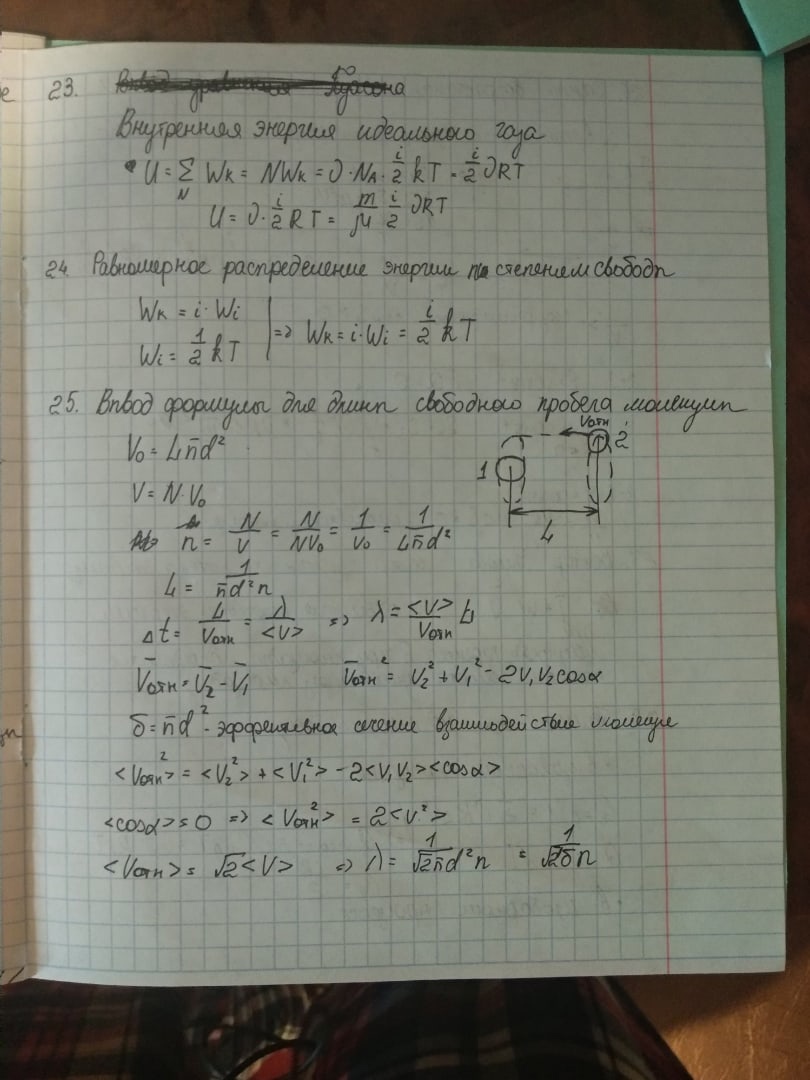 23. Вывод уравнения Пуассона
Внутренняя энергия идеального газа
U = Σ_N Wк = NWк = ∂·N_A·i/2 kT = i/2 ∂RT
U = ∂·i/2 RT = m/μ i/2 ∂RT
24. Равномерное распределение энергии по степеням свободы
Wк = i·Wi
Wi = 1/2 kT => Wк = i·Wi = i/2 kT
25. Вывод формулы для длины свободного пробега молекулы
Vотн
1 2
V₀ = Lπd²
V = N·V₀
L
n = N/V = N/NV₀ = 1/V₀ = 1/Lπd²
L = 1/πd²n
Δt = L/Vотн = λ/<V> => λ = <V>/Vотн L
V̄отн = V̄₂ - V̄₁ V̄отн² = V₂² + V₁² - 2V₁V₂cosα
б = πd² - эффективное сечение взаимодействие молекул
<Vотн²> = <V₂²> + <V₁²> - 2<V₁V₂><cosα>
<cosα> = 0 => <Vотн²> = 2<V²>
<Vотн> = √2<V> => λ = 1/√2πd²n = 1/√2бn